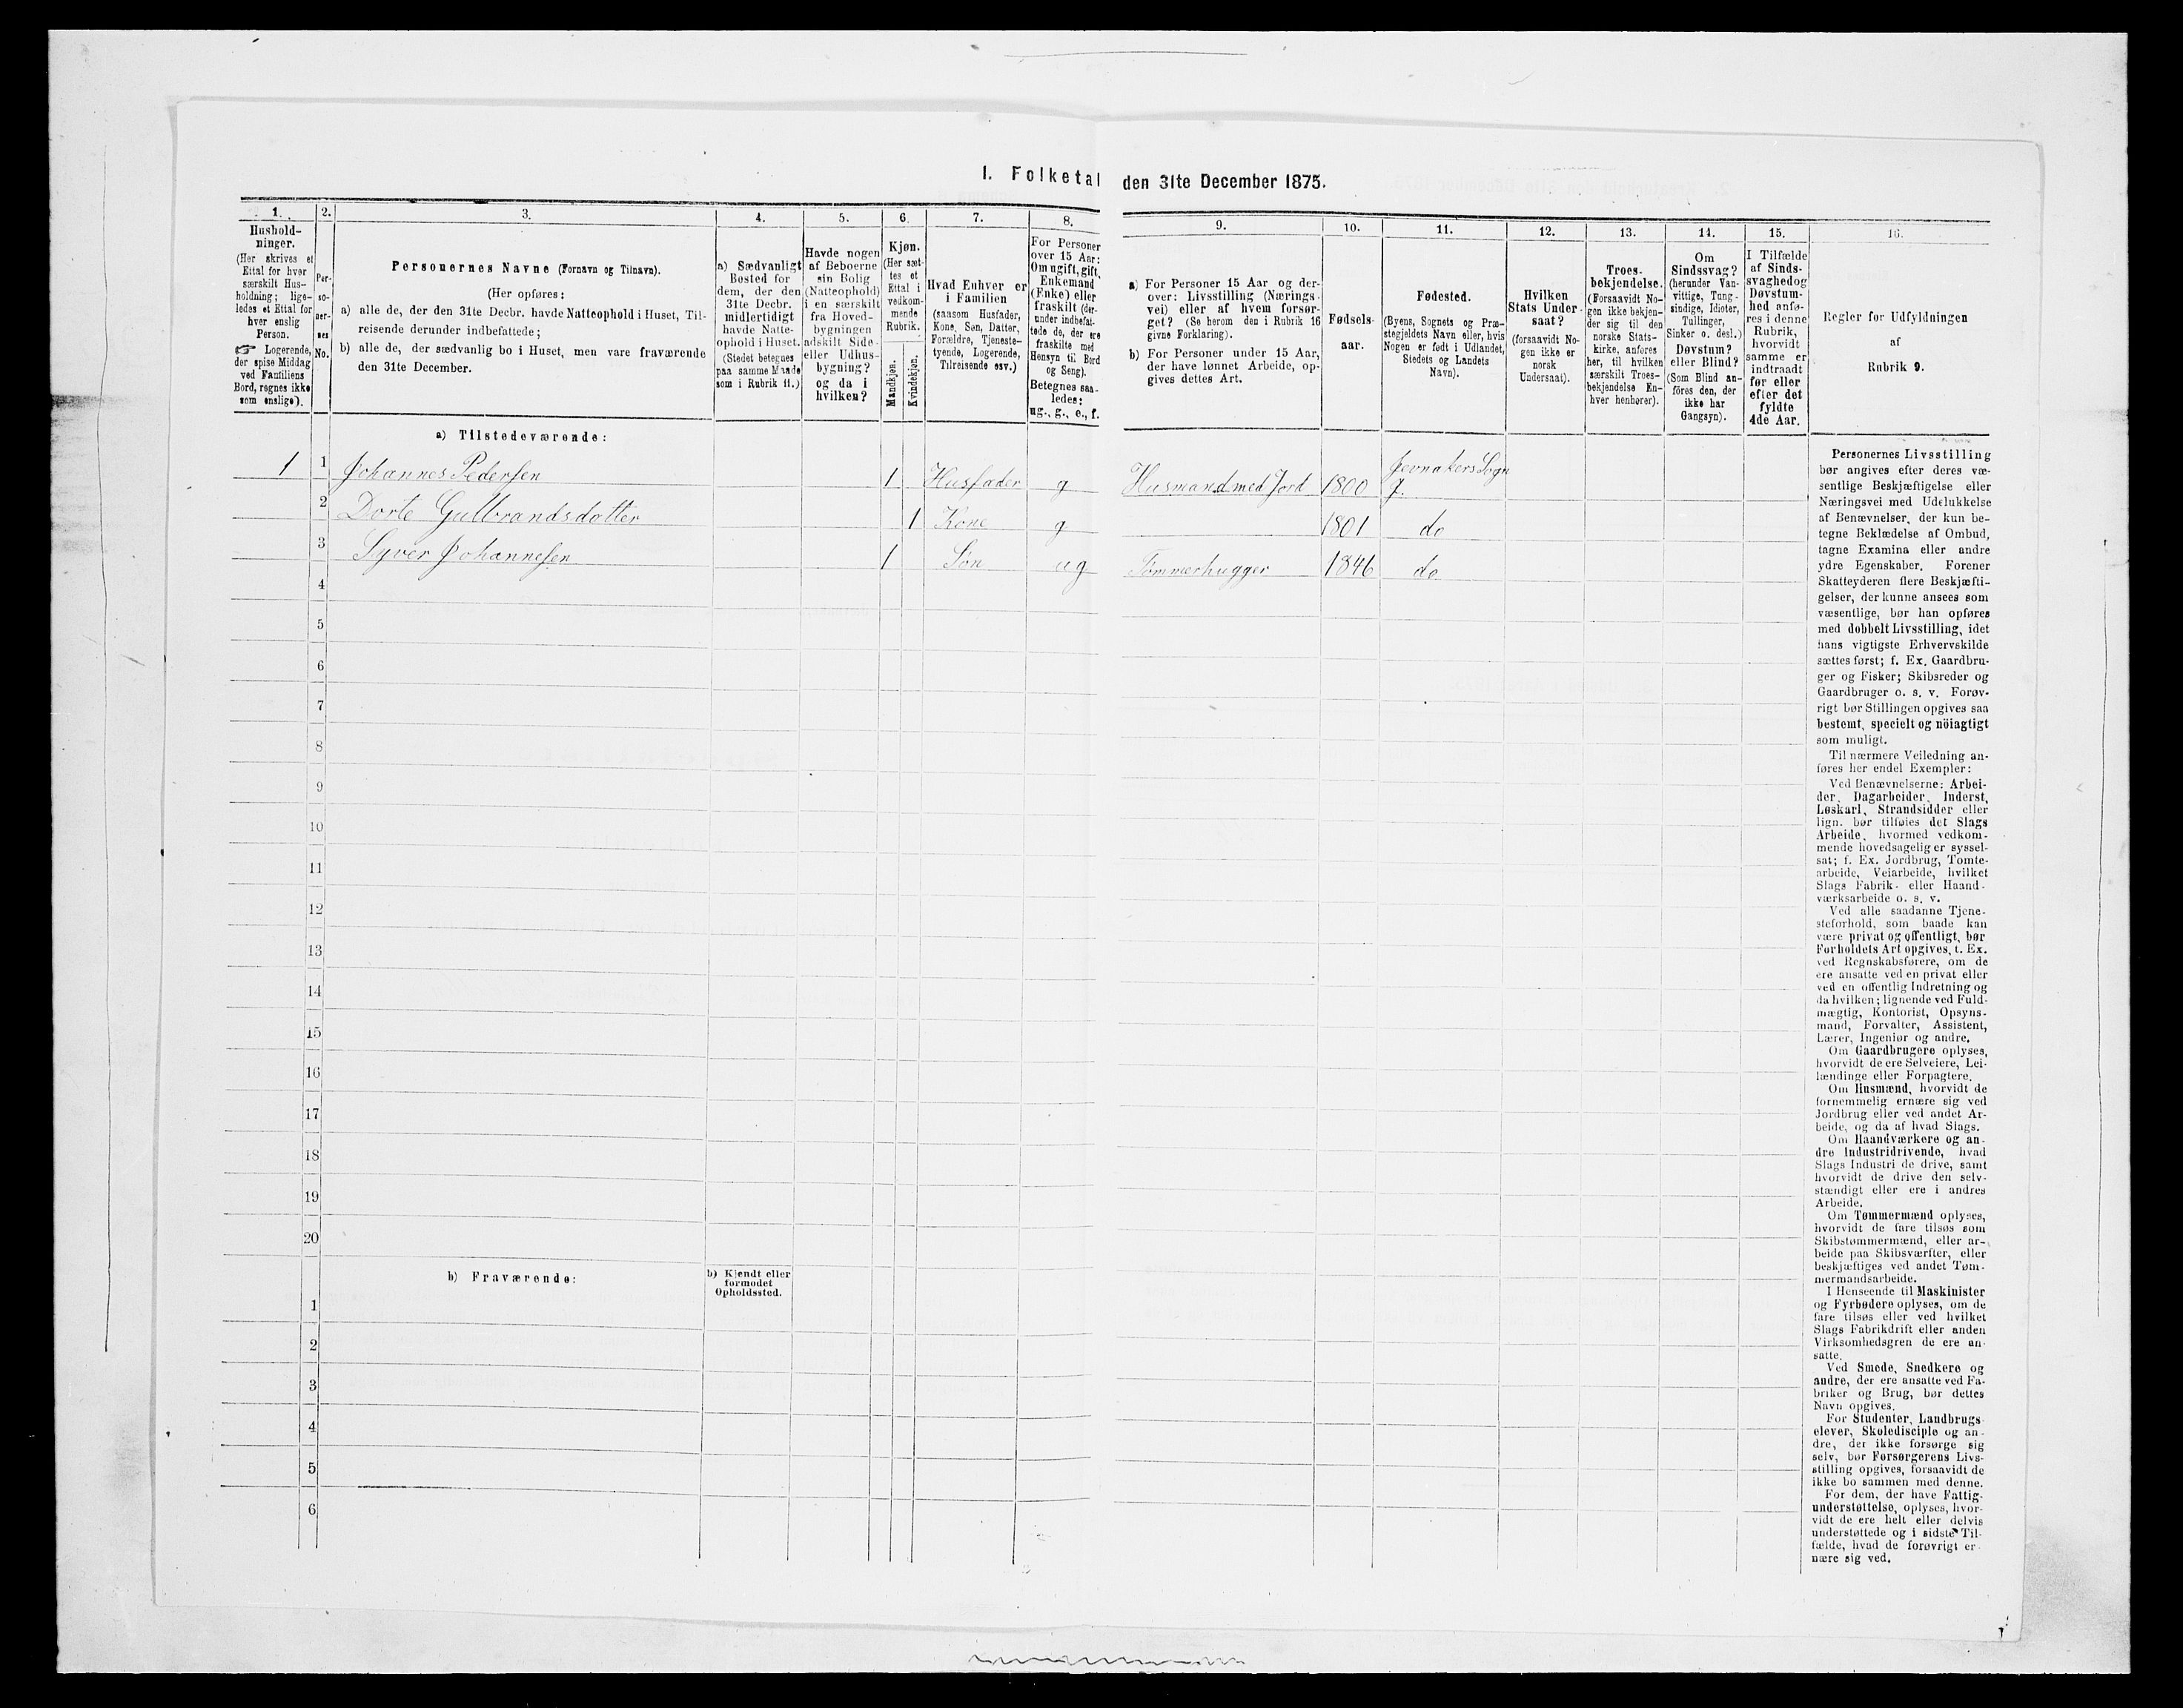 1. Folketal den 31te December 1875.
1.
Hushold-
ninger.
(Her skrives et
Ettal for hver
særskilt Hus-
holdning; lige-
ledes et Ettal for
hver enslig
Person.
☞ Logerende,
der spise Middag
ved Familiens
Bord, regnes ikke
som enslige).
2.
Per-
so-
ner-
nes
No.
3.
Personernes Navne (Fornavn og Tilnavn).
(Her opføres:
a) alle de, der den 31te Decbr. havde Natteophold i Huset, Til-
reisende derunder indbefattede;
b) alle de, der sædvanlig bo i Huset, men vare fraværende
den 31te December.
4.
a) Sædvanligt
Bosted for
dem, der den
31te Decbr.
midlertidigt
havde Natte-
ophold i Huset.
(Stedet betegnes
paa samme Maade
som i Rubrik 11.)
5.
Havde nogen
af Beboerne
sin Bolig
(Natteophold)
i en særskilt
fra Hoved-
bygningen
adskilt Side-
eller Udhus-
bygning?
og da i
hvilken?
6.
Kjøn.
(Her sæt-
tes et
Ettal i
vedkom-
mende
Rubrik.
Mandkjøn.
Kvindekjøn.
7.
Hvad Enhver er
i Familien
(saasom Husfader,
Kone, Søn, Datter,
Forældre, Tjeneste-
tyende, Logerende,
Tilreisende osv.)
8.
For Personer
over 15 Aar:
Om ugift, gift,
Enkemand
(Enke) eller
fraskilt (der-
under indbefat-
tede de, der ere
fraskilte med
Hensyn til Bord
og Seng).
Betegnes saa-
ledes:
ug., g., e., f.
9.
a) For Personer 15 Aar og der-
over: Livsstilling (Nærings-
vei) eller af hvem forsør-
get? (Se herom den i Rubrik 16
givne Forklaring).
b) For Personer under 15 Aar,
der have lønnet Arbeide, op-
gives dettes Art.
10.
Fødsels-
aar.
11.
Fødested.
(Byens, Sognets og Præ-
stegjeldets Navn eller, hvis
Nogen er født i Udlandet,
Stedets og Landets
Navn).
12.
Hvilken
Stats Under-
saat?
(forsaavidt No-
gen ikke er
norsk
Undersaat).
13.
Troes-
bekjendelse.
(Forsaavidt No-
gen ikke bekjen-
der sig til den
norske Stats-
kirke, anføres
her, til hvilken
særskilt Troes-
bekjendelse En-
hver henhører).
14.
Om
Sindssvag?
(herunder Van-
vittige, Tung-
sindige, Idioter,
Tullinger,
Sinker o. desl.)
Døvstum?
eller Blind?
(Som Blind an-
føres den, der
ikke har
Gangsyn).
15.
I Tilfælde
af Sinds-
svaghed og
Døvstum-
hed anfø-
res i denne
Rubrik,
hvorvidt
samme er
indtraadt
før eller
efter det
fyldte
4de Aar.
16.
Regler for Udfyldningen
af
Rubrik 9.
a) Tilstedeværende:
1 1 Johannes Pedersen 1 Husfader g Husmand med Jord 1800 Jevnakers Sogn
2 Dorte Gulbrandsdatter 1 Kone g 1801 do
3 Syver Johannesen 1 Søn ug Tømmerhugger 1846 do
4
5
6
7
8
9
10
11
12
13
14
15
16
17
18
19
20
b) Fraværende:
b) Kjendt eller
formodet
Opholdssted.
1
2
3
4
5
6
Personernes Livsstilling
bør angives efter deres væ-
sentlige Beskjæftigelse eller
Næringsvei med Udelukkelse
af Benævnelser, der kun be-
tegne Beklædelse af Ombud,
tagne Examina eller andre
ydre Egenskaber. Forener
Skatteyderen flere Beskjæfti-
gelser, der kunne ansees som
væsentlige, bør han opføres
med dobbelt Livsstilling, idet
hans vigtigste Erhvervskilde
sættes først; f. Ex. Gaardbru-
ger og Fisker; Skibsreder og
Gaardbruger o. s. v. Forøv-
rigt bør Stillingen opgives saa
bestemt, specielt og nöiagtigt
som muligt.
Til nærmere Veiledning an-
føres her endel Exempler:
Ved Benævnelserne: Arbei-
der, Dagarbeider, Inderst,
Løskarl, Strandsidder eller
lign. bør tilføies det Slags
Arbeide, hvormed vedkom-
mende hovedsagelig er syssel-
sat; f. Ex. Jordbrug, Tomte-
arbeide, Veiarbeide, hvilket
Slags Fabrik- eller Haand-
værksarbeide o. s. v.
Ved alle saadanne Tjene-
steforhold, som baade kan
være privat og offentligt, bør
Forholdets Art opgives, f. Ex.
ved Regnskabsførere, om de
ere ansatte ved en privat eller
ved en offentlig Indretning og
da hvilken; lignende ved Fuld-
mægtig, Kontorist, Opsyns-
mand, Forvalter, Assistent,
Lærer, Ingeniør og andre.
Om Gaardbrugere oplyses,
hvorvidt de ere Selveiere, Lei-
lændinge eller Forpagtere.
Om Husmænd, hvorvidt de
fornemmelig ernære sig ved
Jordbrug eller ved andet Ar-
beide, og da af hvad Slags.
Om Haandværkere og an-
dre Industridrivende, hvad
Slags Industri de drive, samt
hvorvidt de drive den selv-
stændigt eller ere i andres
Arbeide.
Om Tømmermænd oplyses,
hvorvidt de fare tilsøs som
Skibstømmermænd, eller ar-
beide paa Skibsværfter, eller
beskjæftiges ved andet Tøm-
mermandsarbeide.
I Henseende til Maskinister
og Fyrbødere oplyses, om de
fare tilsøs eller ved hvilket
Slags Fabrikdrift eller anden
Virksomhedsgren de ere an-
satte.
Ved Smede, Snedkere og
andre, der ere ansatte ved Fa-
briker og Brug, bør dettes
Navn opgives.
For Studenter, Landbrugs-
elever, Skoledisciple og an-
dre, der ikke forsørge sig
selv, bør Forsørgerens Livs-
stilling opgives, forsaavidt de
ikke bo sammen med denne.
For dem, der have Fattig-
understøttelse, oplyses, hvor-
vidt de ere helt eller delvis
understøttede og i sidste Til-
fælde, hvad de forøvrigt er-
nære sig ved.